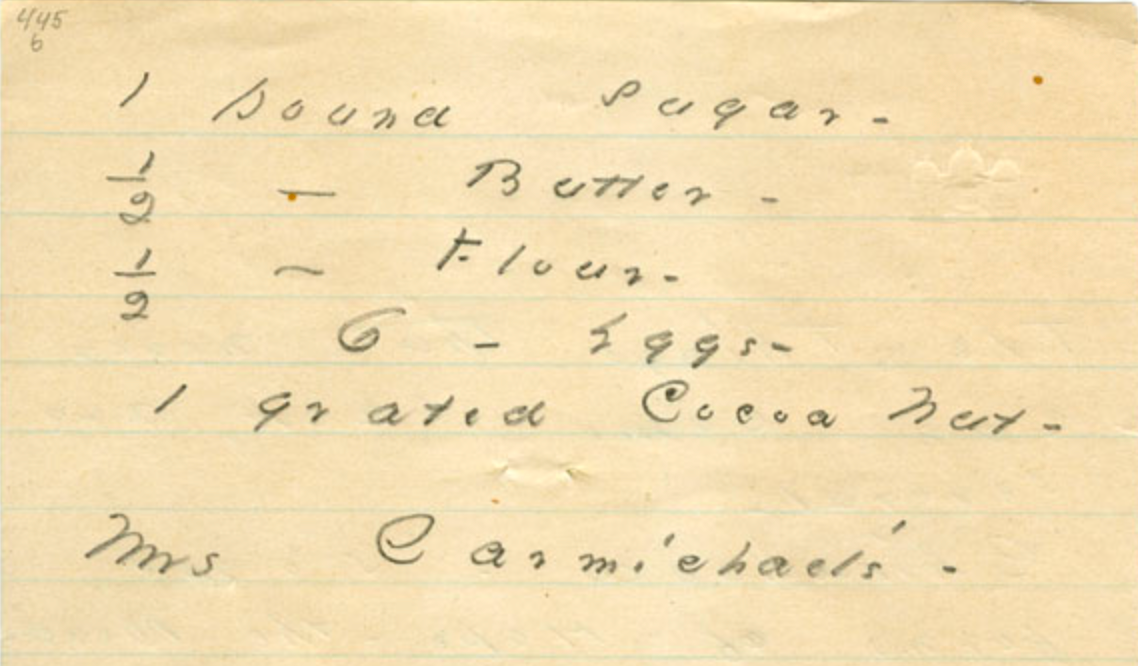 445
6
1 pound Sugar -
1/2 — Butter -
1/2 — Flour -
6 - Eggs -
1 grated Cocoa Nut -
Mrs Carmichael's -